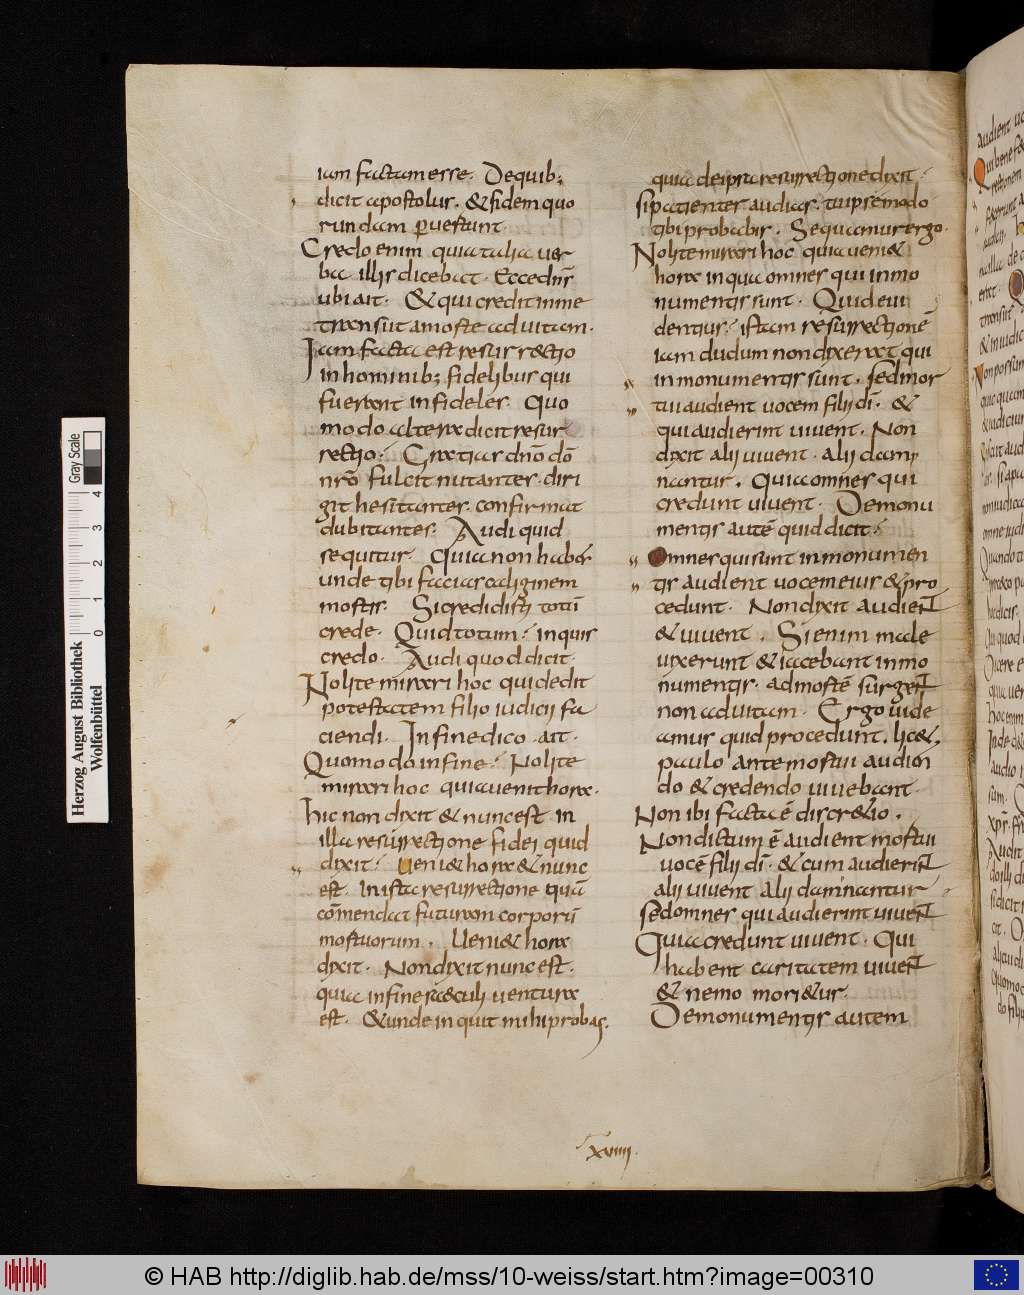 iam factam esse. De quib;
dicit apostolus. & fidem quo
rundam ꝑuertunt.
Credo enim quia talia uer
ba illis dicebat. Ecce dn̄s
ubi ait. & qui credit in me
transiit a morte ad uitam.
Iam facta est resurrectio
in hominib; fidelibus qui
fuerant infideles. Quo
modo altera dicitresur
rectio. Gratias dn̄o dō
nr̄o fulcit nutantes. diri
git hesitantes. confirmat
dubitantes. Audi quid
sequitur. Quia non habes
unde tibi facias caliginem
mortis. Si credidisti totū
crede. Quid totum? inquis
credo. Audi quod dicit.
Nolite mirari hoc quia dedit
potestatem filio iudicii fa
ciendi. In fine dico. ait.
Quomodo in fine? Nolite
mirari hoc quia uenit hora.
hic non dixit & nunc est. in
illa resurrectione fidei quid
dixit? Ueni& hora & nunc
est. In ista resurrectione quā
cōmendat futuram corporū
mortuorum. Ueni& hora
dixit. Non dixit nunc est.
quia in fine saeculi uentura
est. & unde inquit mihi probas.
quia de ipsa resurrectione dixit.
si patienter audias. tu ipse modo
tibi probabis. Sequamur ergo.
Nolite mirari hoc quia ueni&
hora in qua omnes qui in mo
numentis sunt. Quid eui
dentius? istam resurrectionē
iam dudum non dixerat qui
in monumentis sunt. sed mor
tui audient uocem filii dī. &
qui audierint uiuent. Non
dixit alii uiuent. alii damp
nantur. Quia omnes qui
credunt uiuent. De monu
mentis autē quid dicit?
Omnes qui sunt in monumen
tis audient uocem eius & pro
cedunt. Non dixit audient
& uiuent. Si enim male
uixerunt & iacebant in mo
numentis. ad mortē surgent
non ad uitam. Ergo uide
amus quid procedunt. lic&.
paulo ante mortui audien
do & credendo uiuebant.
Non ibi facta ē discr&io.
Non dictum ē audient mortui
uocē filii dī. & cum audierint
alii uiuent alii damnantur
sed omnes qui audierint uiuent
Quia credunt uiuent. Qui
habent caritatem uiuent
& nemo mori&ur.
De monumentis autem
xviiii.
Herzog August Bibliothek
Wolfenbüttel
0 1 2 3 4
Gray Scale
© HAB http://diglib.hab.de/mss/10-weiss/start.htm?image=00310